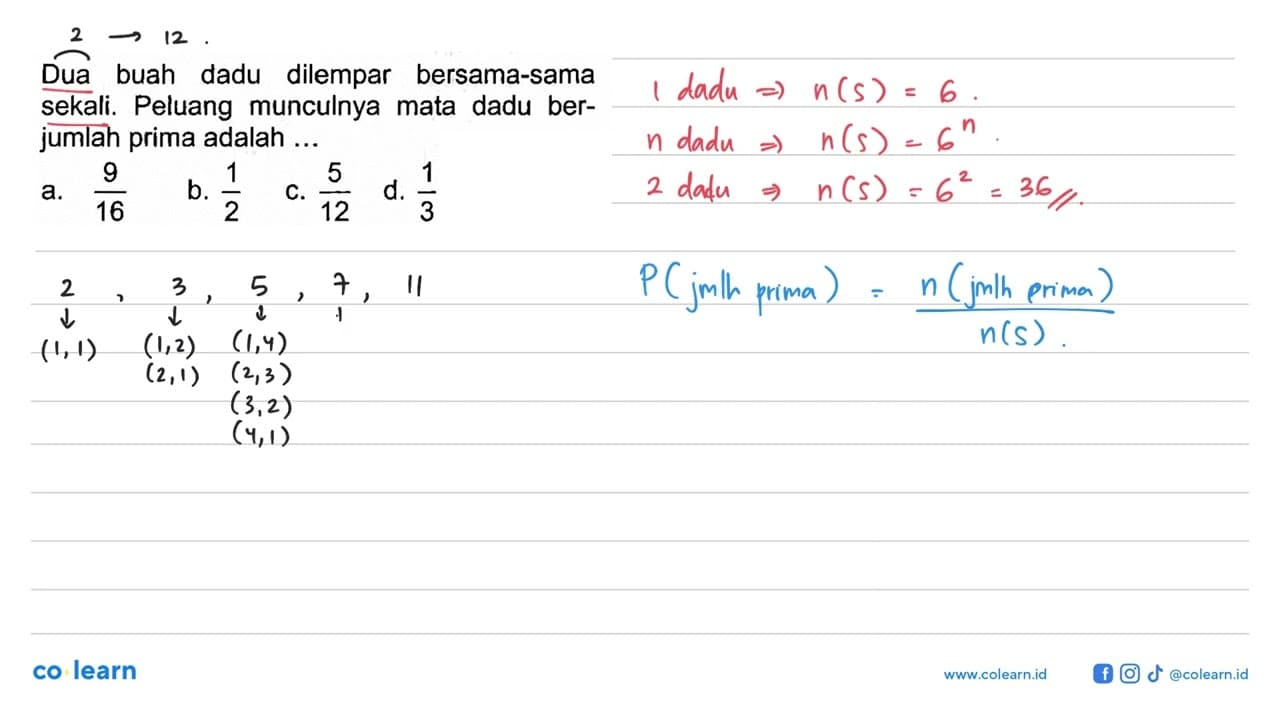 2 → 12 .
Dua buah dadu dilempar bersama-sama
sekali. Peluang munculnya mata dadu ber-
jumlah prima adalah ...
a. 9/16 b. 1/2 c. 5/12 d. 1/3
1 dadu ⇒ n(s) = 6 .
n dadu ⇒ n(s) = 6^n .
2 dadu ⇒ n(s) = 6^2 = 36 //.
2 , 3 , 5 , 7 , 11
↓ ↓ ↓
(1,1) (1,2) (1,4)
(2,1) (2,3)
(3,2)
(4,1)
P(jmlh prima) = n(jmlh prima)
n(s) .
co learn
www.colearn.id
@colearn.id